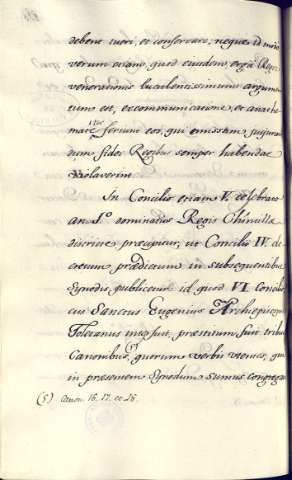 debent tueri, et conservare, neque id modo
verum etiam, quod eiusdem, ergà Reges
venerationis luculentissimum argumen
tum est, excommunicatione, et anathe
mate feriunt eos, qui emissam jusjuran
dum fidei Regibus semper habendae
violaverint
In Concilio etiam V. celebrato
an. 1.º dominatûs Regis Chintila
discrete praecipitur, ut Concilii IV. de
cretum praedictum in subsequentibus
Synodis publicetur id quod VI Concilio
cui Sanctus Eugenius Archiepiscopus
Toletanus praestitum fuit tribus
Canonibus, (5) quorum verbis utemur, qui
in praesentem Synodum sumus congrega
(5) Canon. 16. 17. et 18.